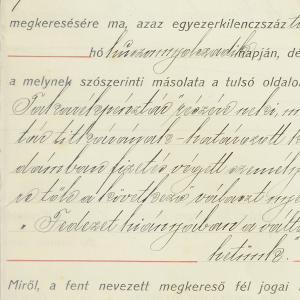 megkeresésére ma, azaz egyezerkilenczszáz
hó huszonnyolczadik napján, dé
a melynek szószerinti másolata a tulsó oldalo
Takarékpénztár részére neki, m
tár titkárának - határozott k
dámban fizetés végett személy
és tőle a következő választ nye
„Fedezet hiányában a vált
hetünk."
Miről, a fent nevezett megkereső fél jogai